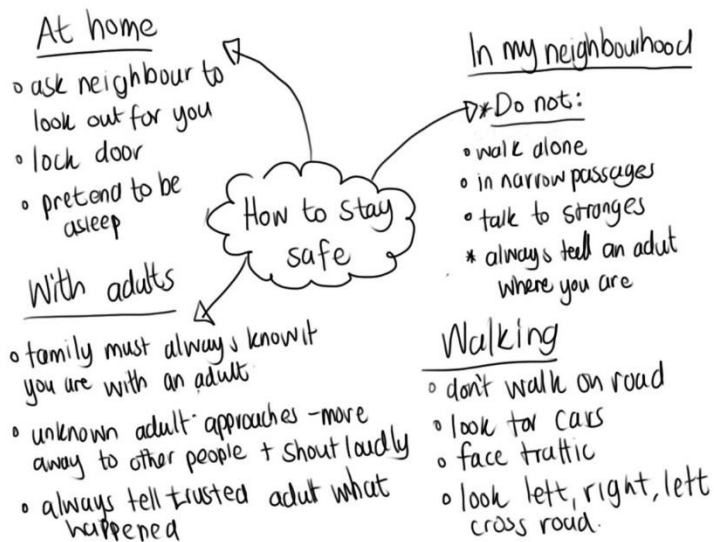 At home
ask neighbour to
look out for you
lock door
pretend to be
asleep
In my neighbourhood
*Do not:
walk alone
in narrow passages
talk to stranges
* always tell an adut
where you are
How to stay
safe
With adults
family must always know it
you are with an adult
unknown adult approaches - more
away to other people + shout loudly
always tell trusted adut what
happened
Walking
don't walk on road
look for cars
face traffic
look left, right, left
cross road.